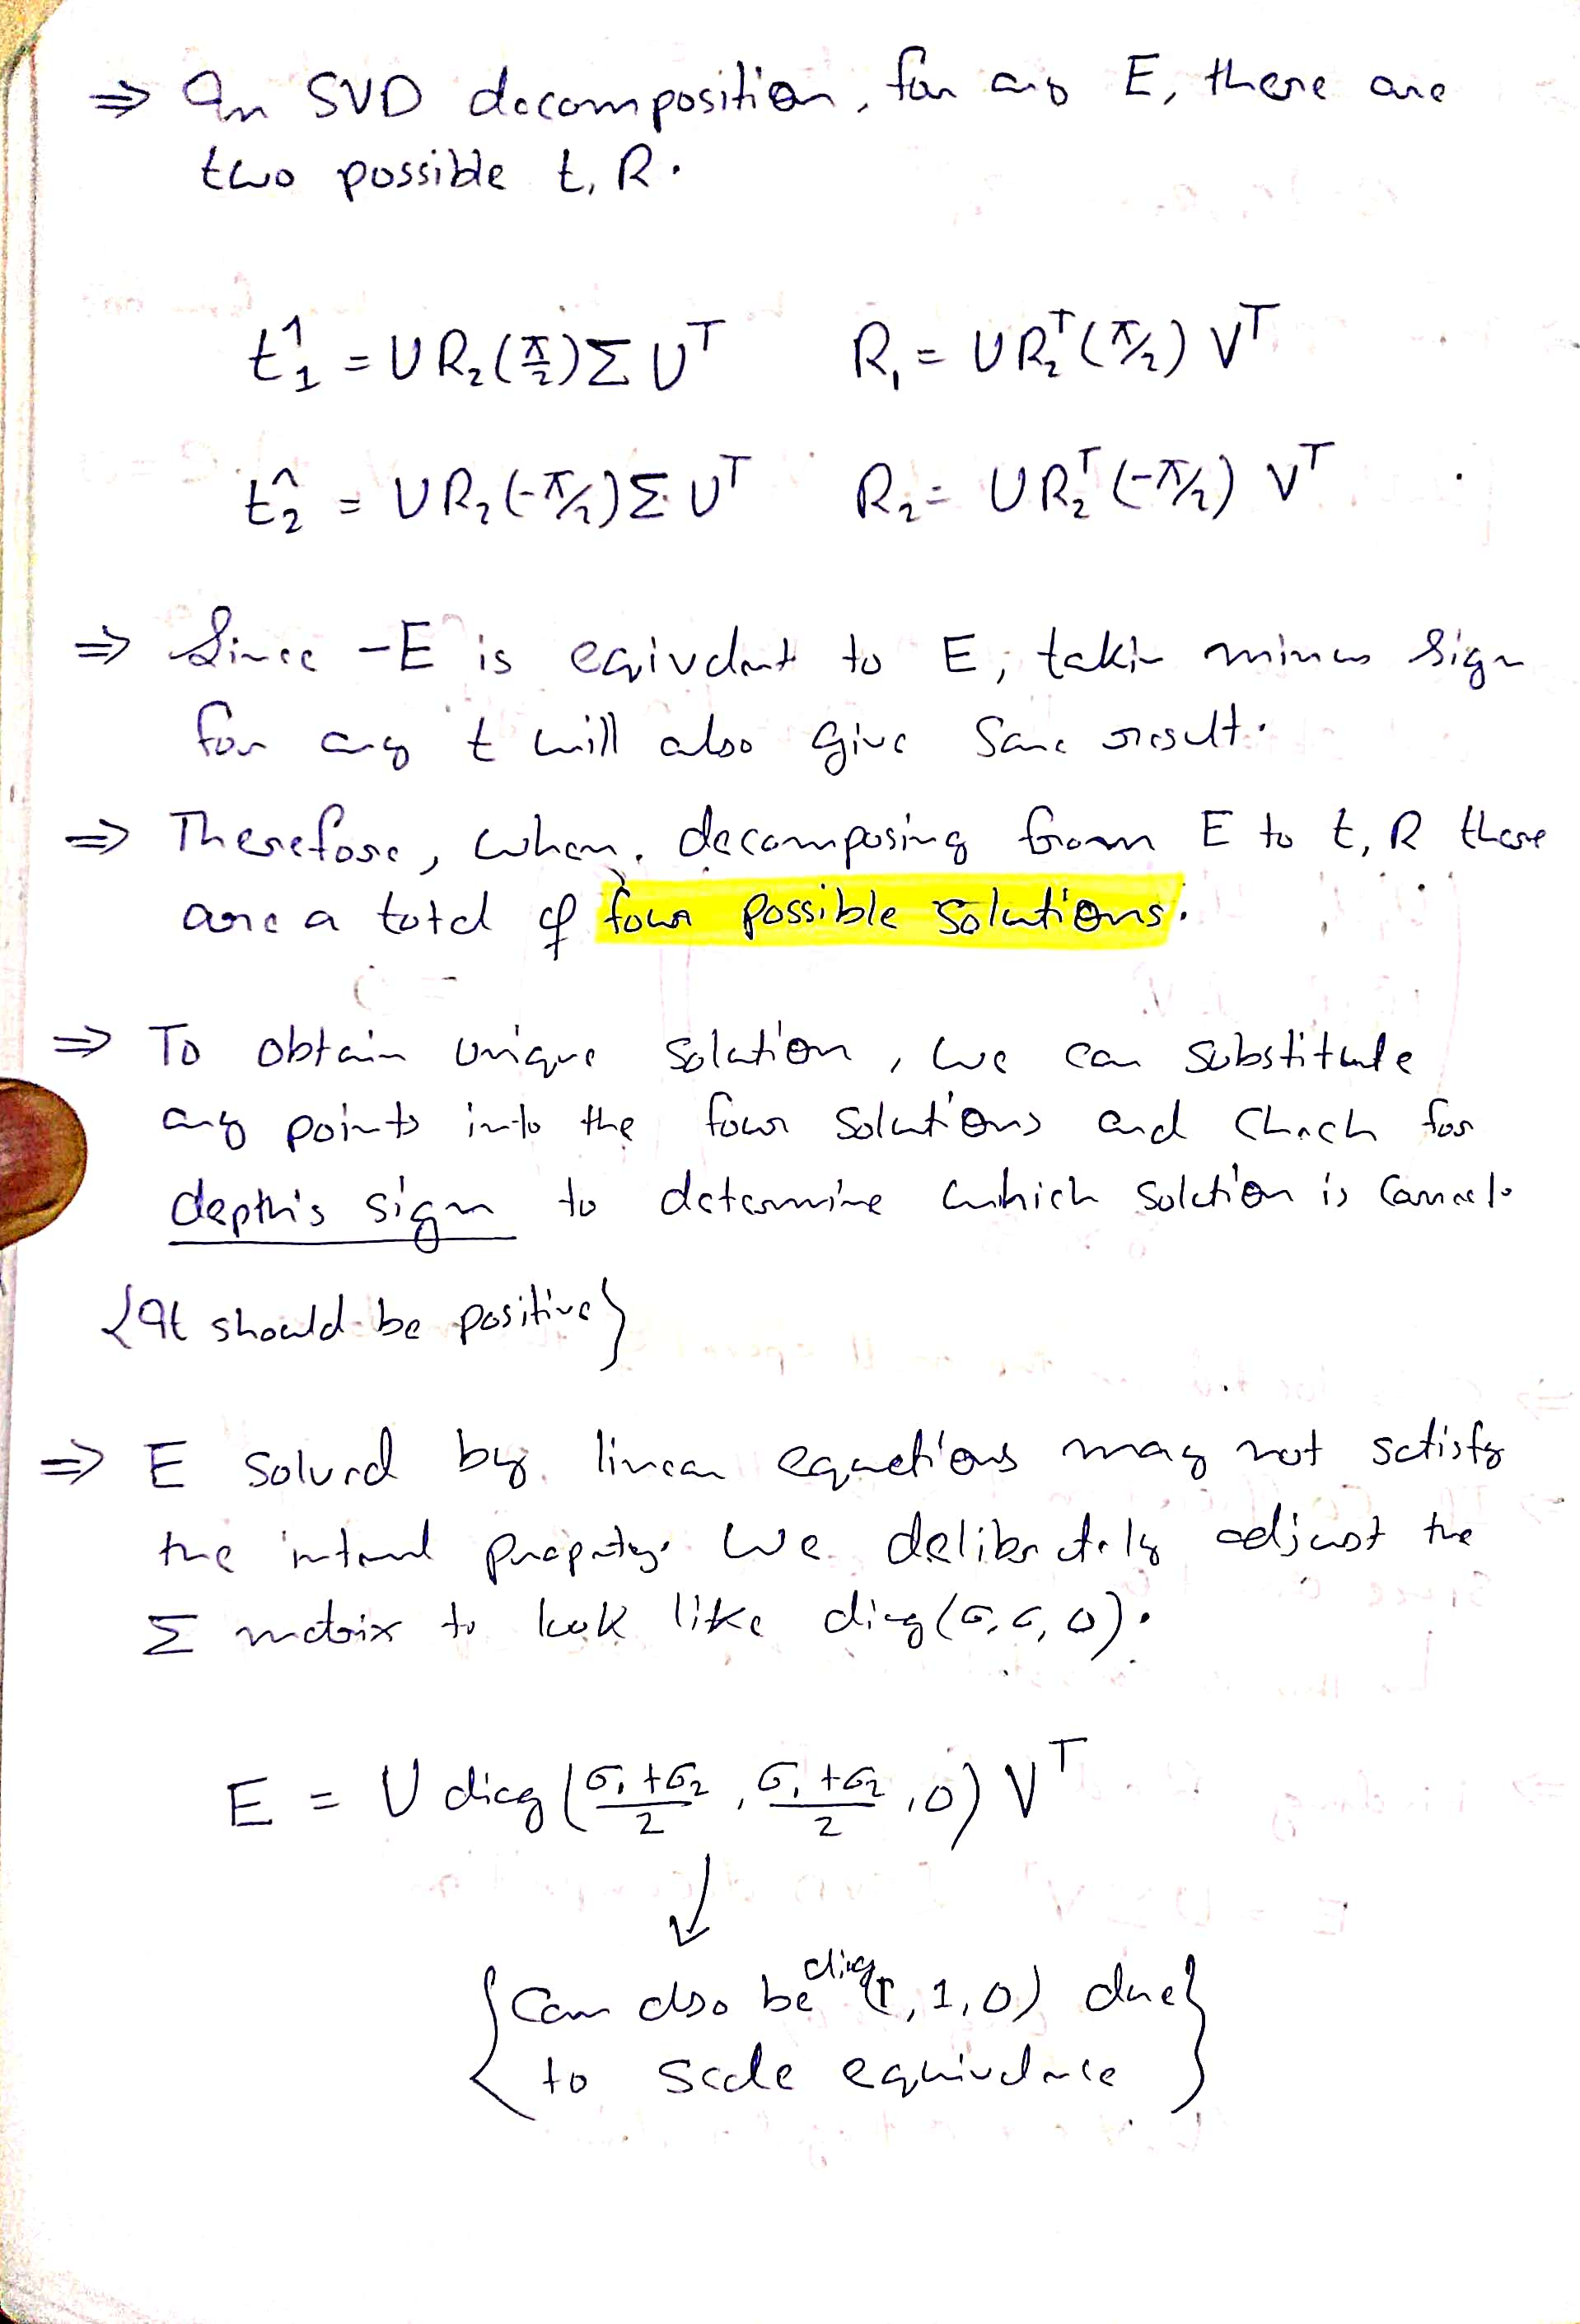 ⇒ In SVD decomposition, for any E, there are
two possible t, R.
t^1 = U R_z(π/2) Σ U^T    R_1 = U R_z^T(π/2) V^T
t^2 = U R_z(-π/2) Σ U^T    R_2 = U R_z^T(-π/2) V^T
⇒ Since -E is equivalent to E, takin minus sign
for any t will also give same result.
⇒ Therefore, when decomposing from E to t, R there
are a total of four possible solutions.
⇒ To obtain unique solution, we can substitute
any points into the four solutions and check for
depth's sign to determine which solution is correct.
{It should be positive}
⇒ E solved by linear equations may not satisfy
the internal property. We deliberately adjust the
Σ matrix to look like diag(σ, σ, 0).
E = U diag(σ_1+σ_2/2, σ_1+σ_2/2, 0) V^T
↓
{Can also be diag(1, 1, 0) due
to scale equivalence}